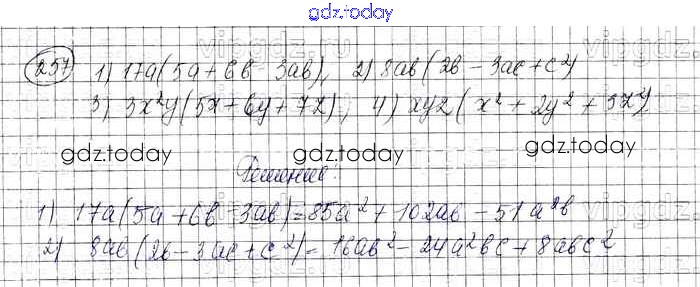 gdz.today
257 1) 17a(5a + 6b 3ab), 2) 8ab(2b - 3ac + c²)
3) 3x²y(5x + 6y + 7z), 4) xyz(x² + 2y² + 3z²)
gdz.today gdz.today gdz.today
Решение:
1) 17a(5a + 6b 3ab) = 85a² + 102ab - 51a²b
2) 8ab(2b - 3ac + c²) = 16ab² - 24a²bc + 8abc²